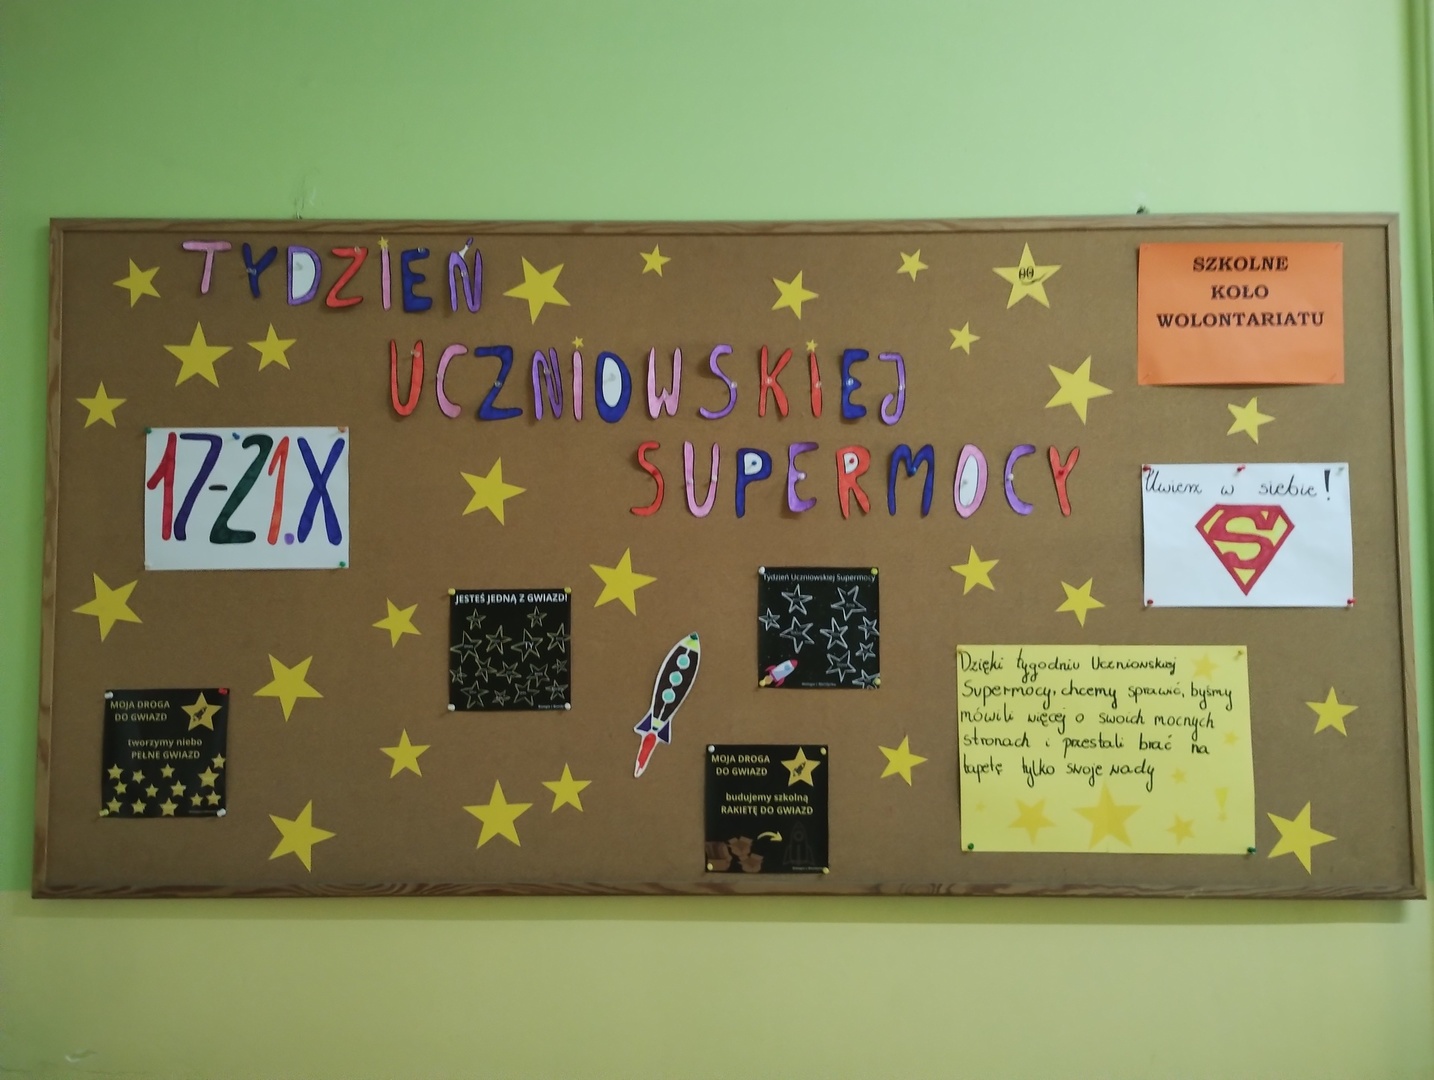 TYDZIEŃ
UCZNIOWSKIEJ
SUPERMOCY
SZKOLNE
KOŁO
WOLONTARIATU
17-21.X
Uwierz w siebie!
S
JESTEŚ JEDNĄ Z GWIAZD!
Tydzień Uczniowskiej Supermocy
MOJA DROGA
DO GWIAZD
tworzymy niebo
PEŁNE GWIAZD
MOJA DROGA
DO GWIAZD
budujemy szkolną
RAKIETĘ DO GWIAZD
Dzięki tygodniu Uczniowskiej
Supermocy, chcemy sprawić, byśmy
mówili więcej o swoich mocnych
stronach i przestali brać na
tapetę tylko swoje wady